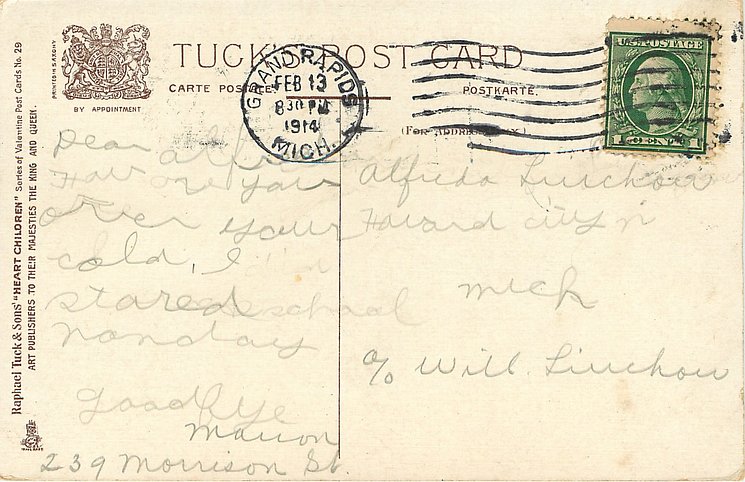 TUCK'S POST CARD
CARTE POSTALE. POSTKARTE.
(FOR ADDRESS ONLY)
BY APPOINTMENT
PRINTED IN SAXONY
Raphael Tuck & Sons' "HEART CHILDREN" Series of Valentine Post Cards No. 29
ART PUBLISHERS TO THEIR MAJESTIES THE KING AND QUEEN.
GRAND RAPIDS
FEB 13
830 PM
1914
MICH.
U.S. POSTAGE
1 CENT 1
Dear
How are your
over your
cold, I
stared school
nonday
Goodbye
Marion
239 Morrison St.
Alfreda Linchow
Howard city
mich
c/o Will. Linchow